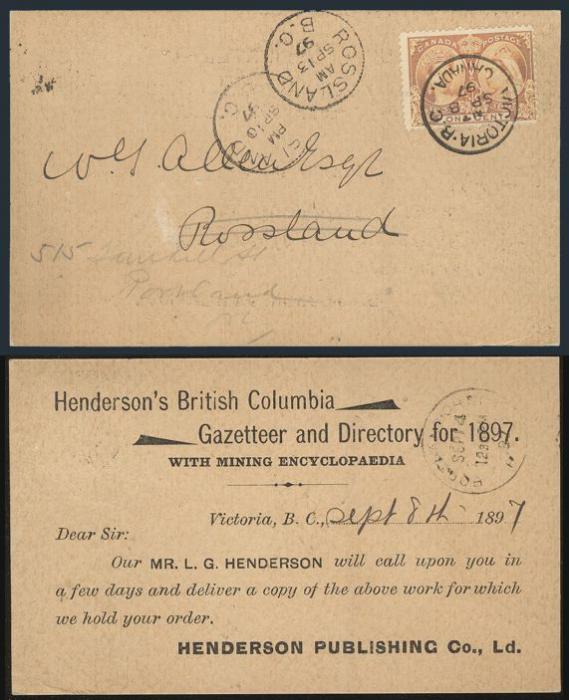 ROSSLAND B.C.
AM
SP 13
97
ROSSLAND B.C.
PM
SP 10
97
CANADA POSTAGE
ONE CENT
VICTORIA·B.C. CANADA.
SP 8
97
W G Allen Esqr
Rossland
515
Portland
Henderson's British Columbia
Gazetteer and Directory for 1897.
WITH MINING ENCYCLOPAEDIA
Victoria, B. C., Sept 8th 1897
Dear Sir:
Our MR. L. G. HENDERSON will call upon you in
a few days and deliver a copy of the above work for which
we hold your order.
HENDERSON PUBLISHING Co., Ld.